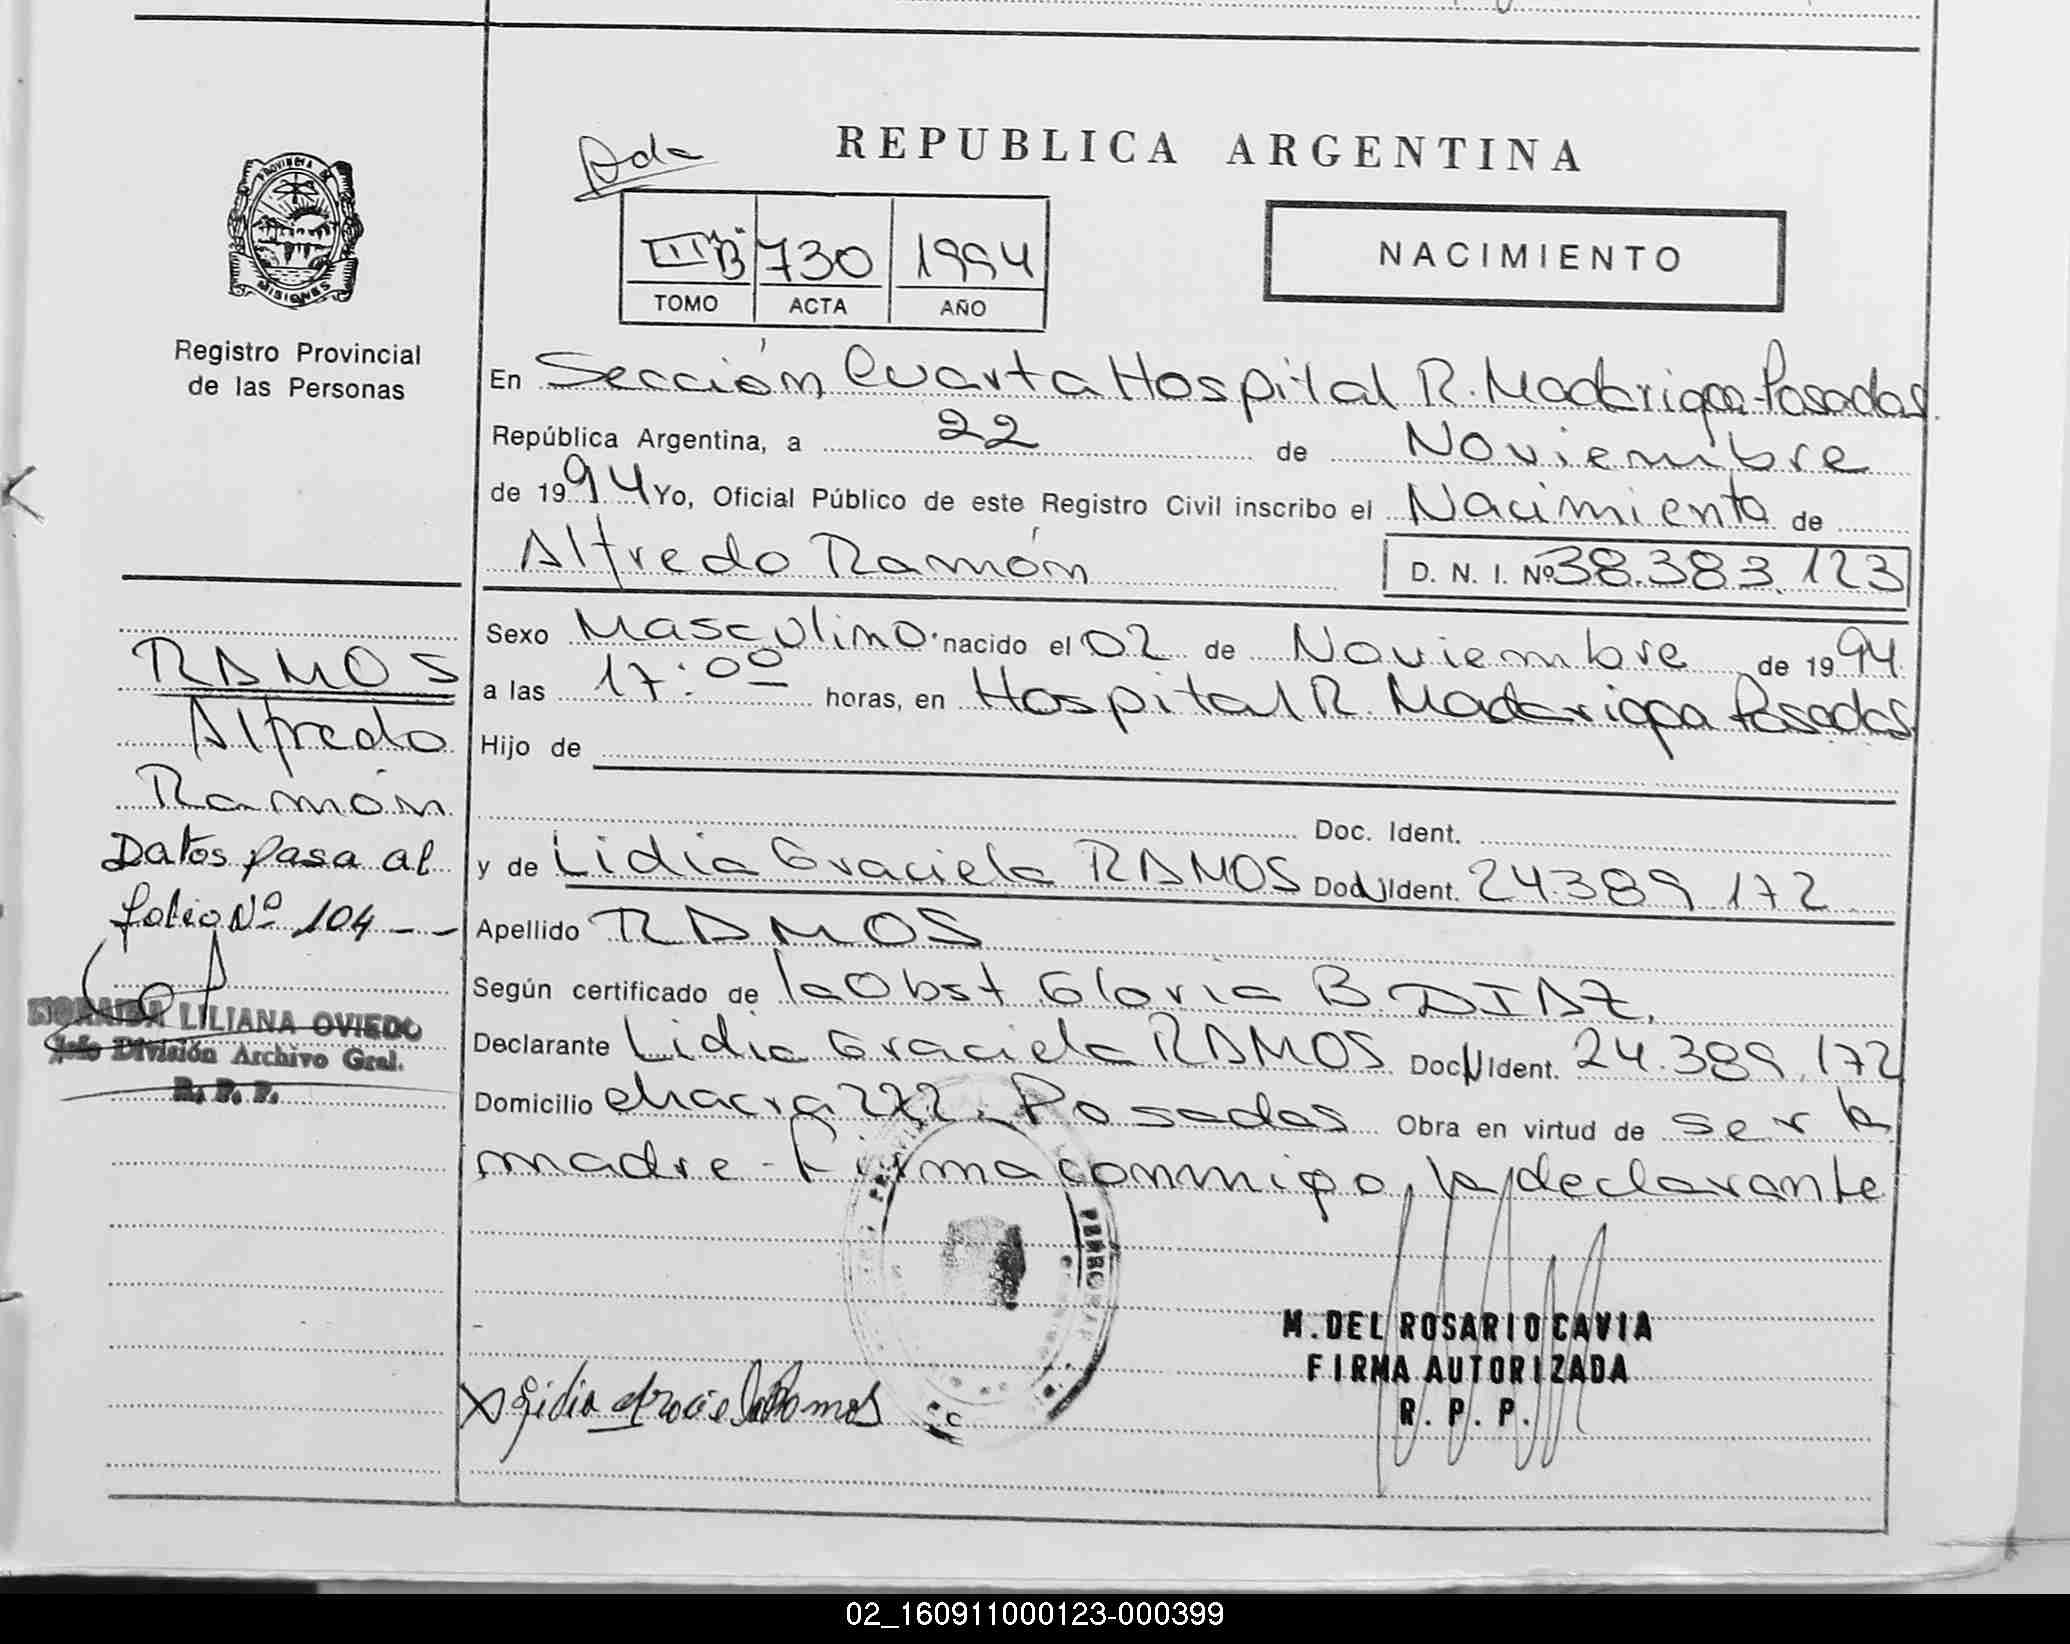 Ada
REPUBLICA ARGENTINA
III "B" 730 1994
TOMO ACTA AÑO
NACIMIENTO
PROVINCIA DE MISIONES
Registro Provincial
de las Personas
En Sección Cuarta Hospital R. Madariaga-Posadas.
República Argentina, a 22 de Noviembre
de 1994 Yo, Oficial Público de este Registro Civil inscribo el Nacimiento de
Alfredo Ramón D. N. I. Nº 38.383.123
Sexo Masculino nacido el 02 de Noviembre de 1994.
a las 17:00 horas, en Hospital R. Madariaga Posadas
Hijo de
Doc. Ident.
y de Lidia Graciela RAMOS Doc. Ident. 24.389.172
Apellido RAMOS
Según certificado de la Obst Gloria B. DIAZ.
Declarante Lidia Graciela RAMOS Doc. Ident. 24.389.172
Domicilio chacra 272. Posadas Obra en virtud de ser la
madre - Firma conmigo, la declarante
RAMOS
Alfredo
Ramón
Datos pasa al
folio Nº 104 - -
LILIANA OVIEDO
Jefe División Archivo Gral.
R. P. P.
M. DEL ROSARIO CAVIA
FIRMA AUTORIZADA
R. P. P.
X Lidia Graciela Ramos
02_160911000123-000399